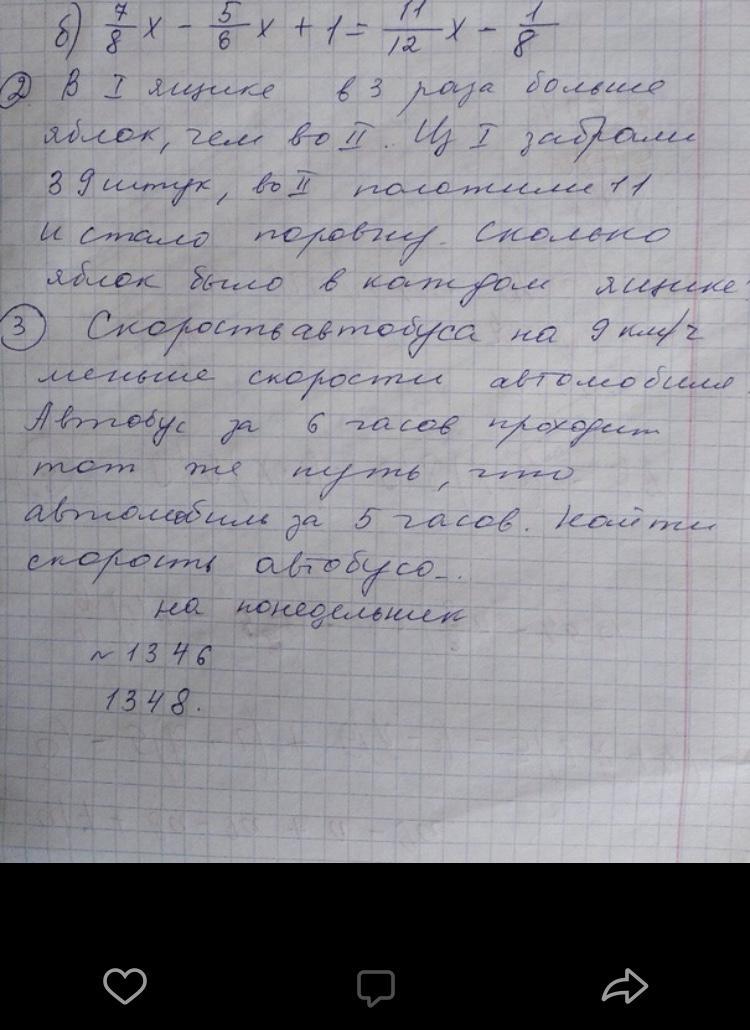 б) 7/8 x - 5/6 x + 1 = 11/12 x - 1/8
2) В I ящике в 3 раза больше
яблок, чем во II. Из I забрали
39 штук, во II положили 11
и стало поровну. Сколько
яблок было в каждом ящике?
3) Скорость автобуса на 9 км/ч
меньше скорости автомобиля
Автобус за 6 часов проходит
тот же путь, что
автомобиль за 5 часов. Найти
скорость автобуса.
на понедельник
~ 1346
1348.